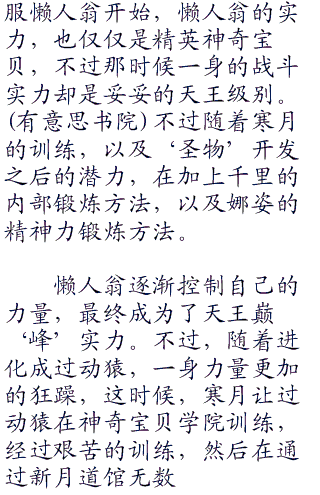 服懒人翁开始，懒人翁的实
力，也仅仅是精英神奇宝
贝，不过那时候一身的战斗
实力却是妥妥的天王级别。
(有意思书院)不过随着寒月
的训练，以及‘圣物’开发
之后的潜力，在加上千里的
内部锻炼方法，以及娜姿的
精神力锻炼方法。
懒人翁逐渐控制自己的
力量，最终成为了天王巅
‘峰’实力。不过，随着进
化成过动猿，一身力量更加
的狂躁，这时候，寒月让过
动猿在神奇宝贝学院训练，
经过艰苦的训练，然后在通
过新月道馆无数